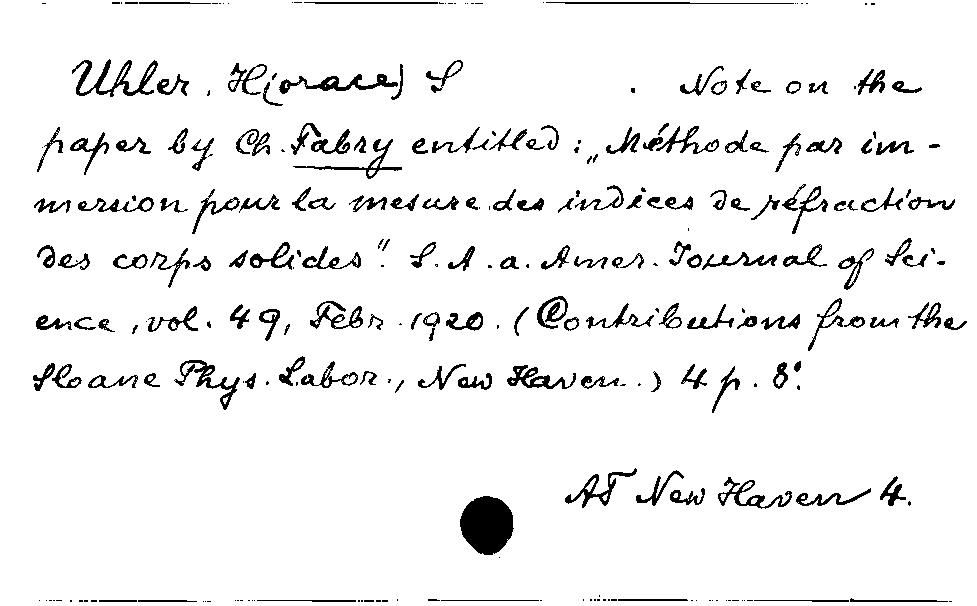 Uhler, H(orace) S . Note on the
paper by Ch. Fabry entitled : „Méthode par im-
mersion pour la mesure des indices de réfraction
des corps solides". S. A. a. Amer. Journal of Sci-
ence, vol. 49, Febr. 1920. (Contributions from the
Sloane Phys. Labor., New Haven.) 4 p. 8°.
AT New Haven 4.